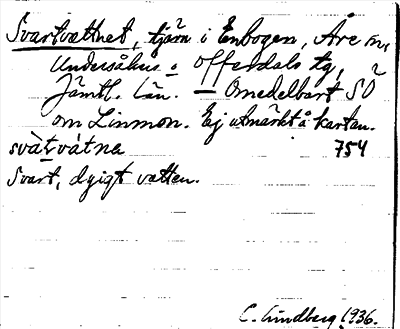 Svartvattnet, tjärn i Enbogen, Åre sn,
Undersåkers o Offerdals tg,
Jämtl. län. — Omedelbart SO
om Linmon. Ej utmärkt å kartan.
svàtvátna 754
Svart, dyigt vatten.
C. Lindberg 1936.